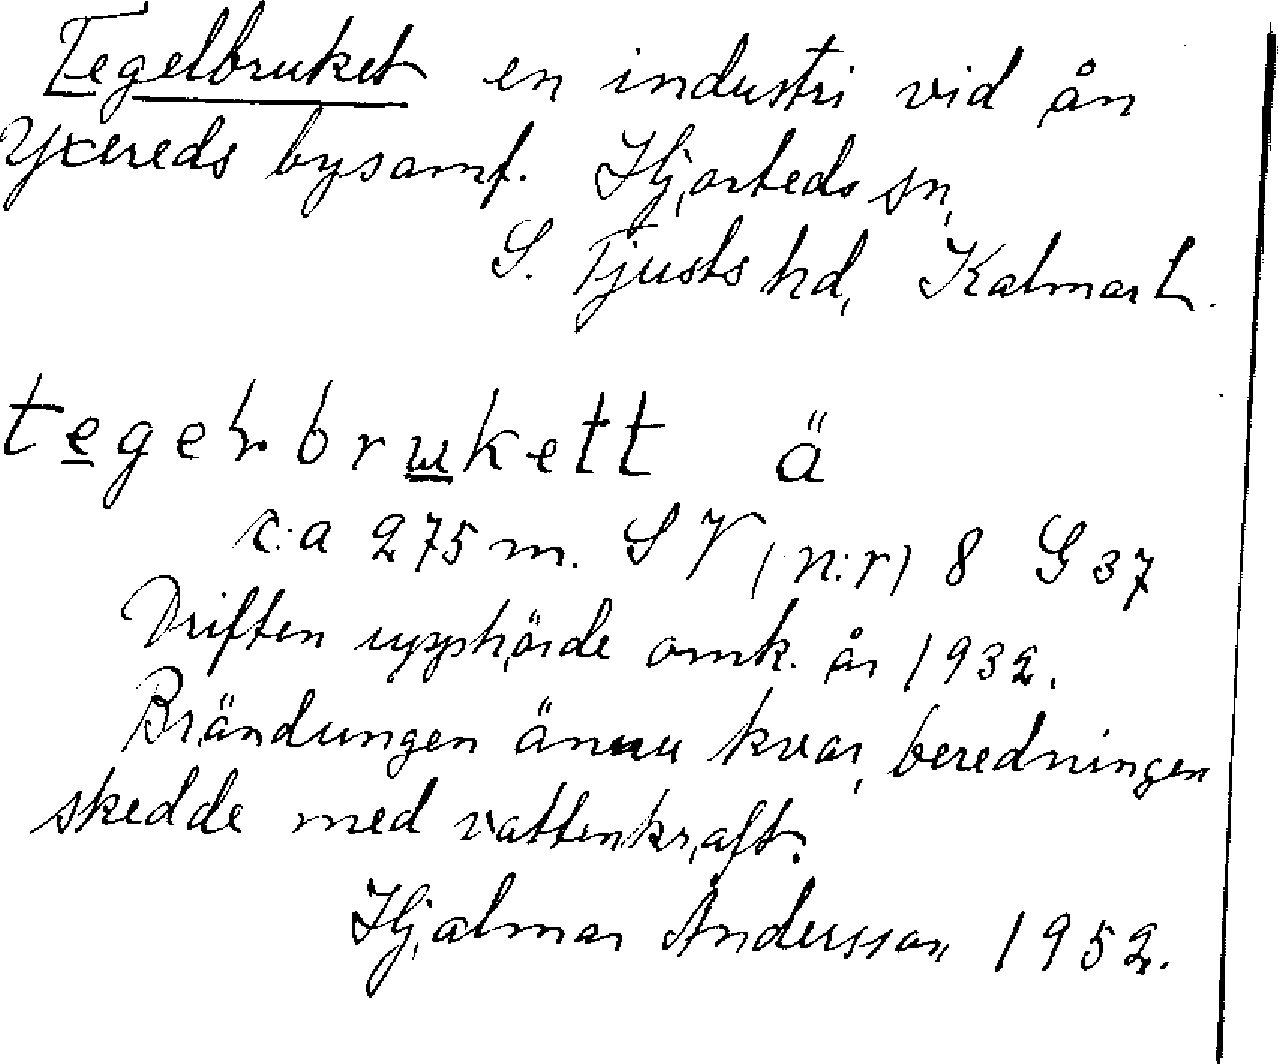 Tegelbruket en industri vid ån
Yxereds bysamf. Hjorteds sn,
S. Tjusts hd, Kalmar L.
tegelbrukett ä
c:a 275 m. SV (n:r) 8 G 37
Driften upphörde omk. år 1932.
Brändungen ännu kvar, beredningen
skedde med vattenkraft.
Hjalmar Andersson 1952.